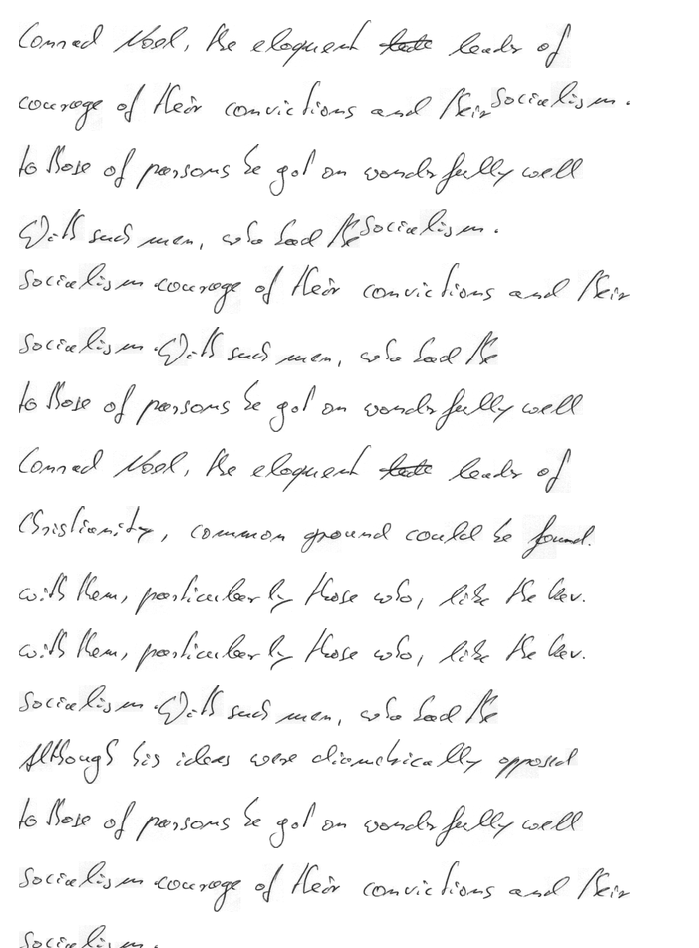 Conrad Noel, the eloquent leader of
courage of their convictions and their Socialism.
to those of parsons he got on wonderfully well
With such men, who had the Socialism.
Socialism courage of their convictions and their
Socialism. With such men, who had the
to those of parsons he got on wonderfully well
Conrad Noel, the eloquent leader of
Christianity, common ground could be found.
with them, particularly those who, like the Rev.
with them, particularly those who, like the Rev.
Socialism. With such men, who had the
Although his ideas were diametrically opposed
to those of parsons he got on wonderfully well
Socialism courage of their convictions and their
Socialism.